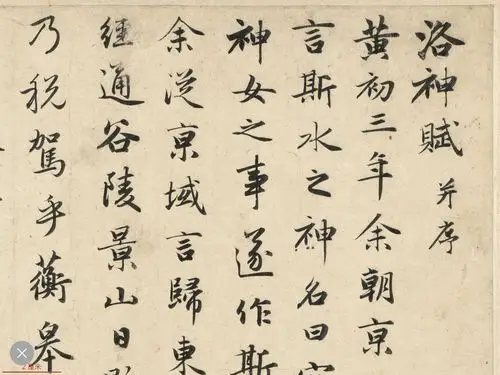 洛神賦 并序
黄初三年余朝京
言斯水之神名曰
神女之事遂作斯
余從京域言歸東
經通谷陵景山日
乃税駕乎蘅皋
2厘米